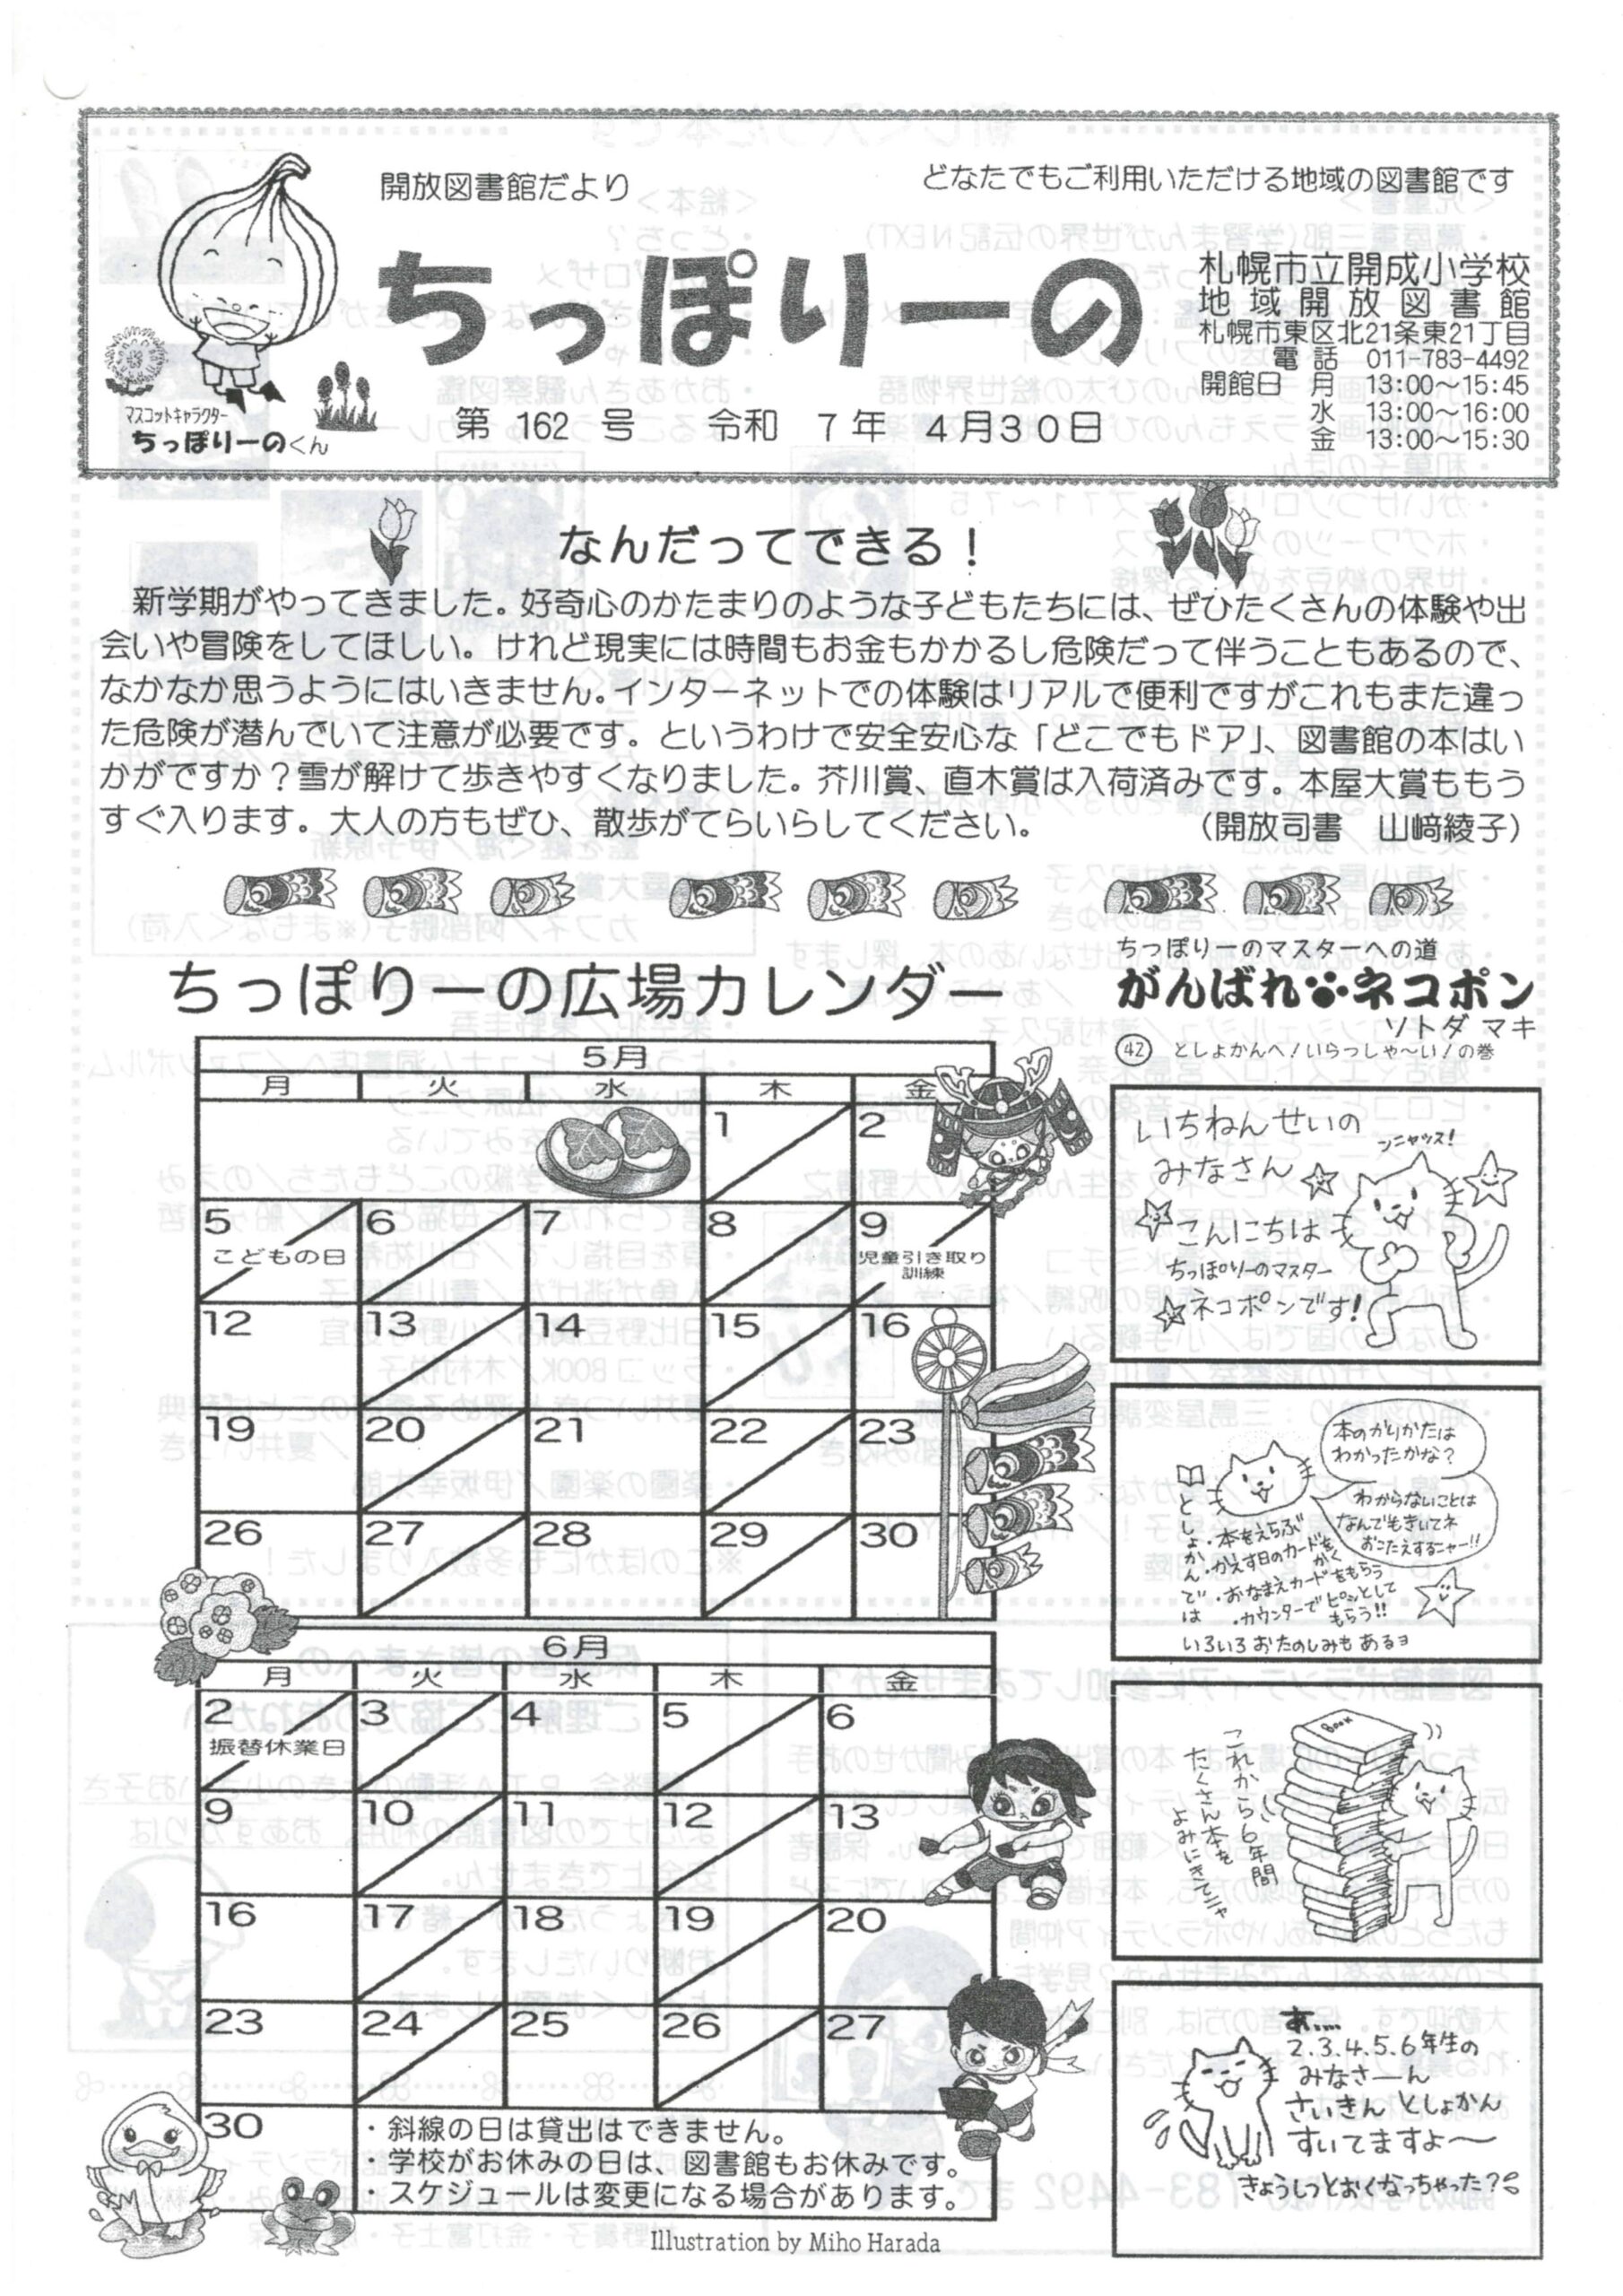 開放図書館だより
どなたでもご利用いただける地域の図書館です
ちっぽりーの
札幌市立開成小学校
地域開放図書館
札幌市東区北21条東21丁目
電話 011-783-4492
開館日 月 13:00～15:45
水 13:00～16:00
金 13:00～15:30
マスコットキャラクター
ちっぽりーのくん
第 162 号 令和 7年 4月30日
なんだってできる！
新学期がやってきました。好奇心のかたまりのような子どもたちには、ぜひたくさんの体験や出
会いや冒険をしてほしい。けれど現実には時間もお金もかかるし危険だって伴うこともあるので、
なかなか思うようにはいきません。インターネットでの体験はリアルで便利ですがこれもまた違っ
た危険が潜んでいて注意が必要です。というわけで安全安心な「どこでもドア」、図書館の本はい
かがですか？雪が解けて歩きやすくなりました。芥川賞、直木賞は入荷済みです。本屋大賞ももう
すぐ入ります。大人の方もぜひ、散歩がてらいらしてください。 （開放司書 山﨑綾子）
ちっぽりーの広場カレンダー
5月
月 火 水 木 金
1 2
5 6 7 8 9
こどもの日
児童引き取り
訓練
12 13 14 15 16
19 20 21 22 23
26 27 28 29 30
6月
月 火 水 木 金
2 3 4 5 6
振替休業日
9 10 11 12 13
16 17 18 19 20
23 24 25 26 27
30
・斜線の日は貸出はできません。
・学校がお休みの日は、図書館もお休みです。
・スケジュールは変更になる場合があります。
Illustration by Miho Harada
ちっぽりーのマスターへの道
がんばれネコポン
ソトダ マキ
㊷ としょかんへ！いらっしゃ～い！の巻
いちねんせいの
みなさん
ンニャッス！
こんにちは
ちっぽりーのマスター
ネコポンです！
本のかりかたは
わかったかな？
わからないことは
なんでもきいてネ
おこたえするニャー!!
としょかんでは
・本をえらぶ
・かえす日のカードをかく
・おなまえカードをもらう
・カウンターでピッとして
もらう!!
いろいろおたのしみもあるヨ
Book
これから6年間
たくさん本を
よみにきてニャ
あ....
2.3.4.5.6年生の
みなさーん
さいきんとしょかん
すいてますよ～
きょうしつとおくなっちゃった？